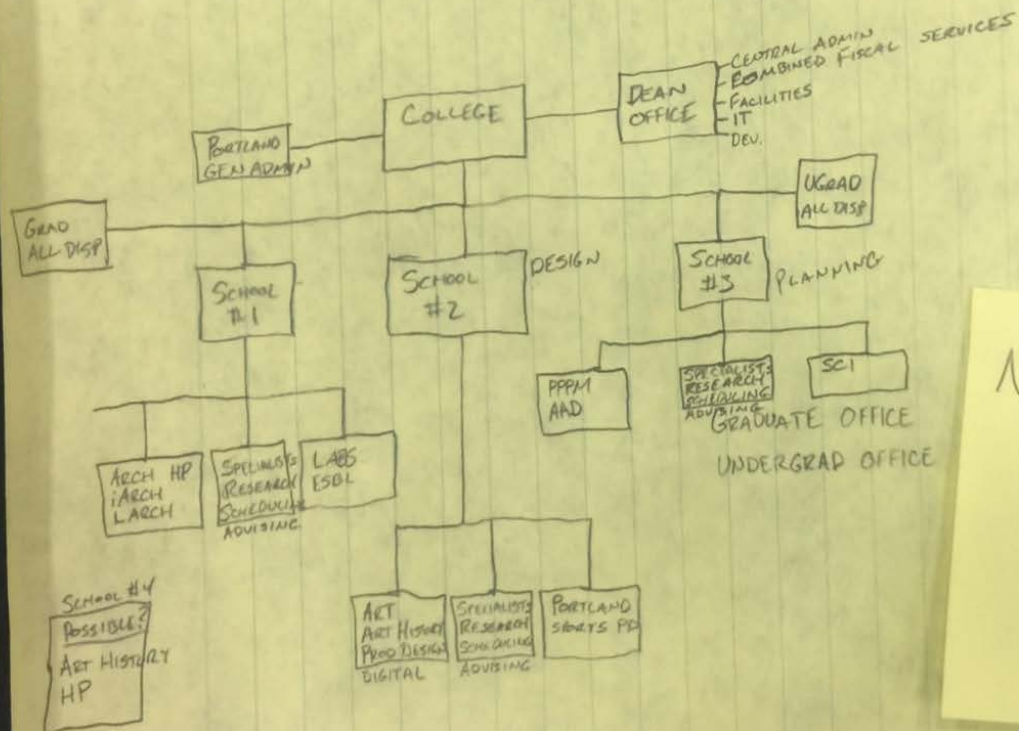 CENTRAL ADMIN
COMBINED FISCAL SERVICES
FACILITIES
IT
DEV.
DEAN
OFFICE
COLLEGE
PORTLAND
GEN ADMIN
UGRAD
ALL DISP
GRAD
ALL DISP
SCHOOL
#1
SCHOOL
#2
DESIGN
SCHOOL
#3
PLANNING
PPPM
AAD
SPECIALISTS
RESEARCH
SCHEDULING
ADVISING
SCI
GRADUATE OFFICE
UNDERGRAD OFFICE
ARCH HP
iARCH
LARCH
SPECIALISTS
RESEARCH
SCHEDULING
ADVISING
LABS
ESBL
SCHOOL #4
POSSIBLE?
ART HISTORY
HP
ART
ART HISTORY
PROD DESIGN
DIGITAL
SPECIALISTS
RESEARCH
SCHEDULING
ADVISING
PORTLAND
SPORTS PD